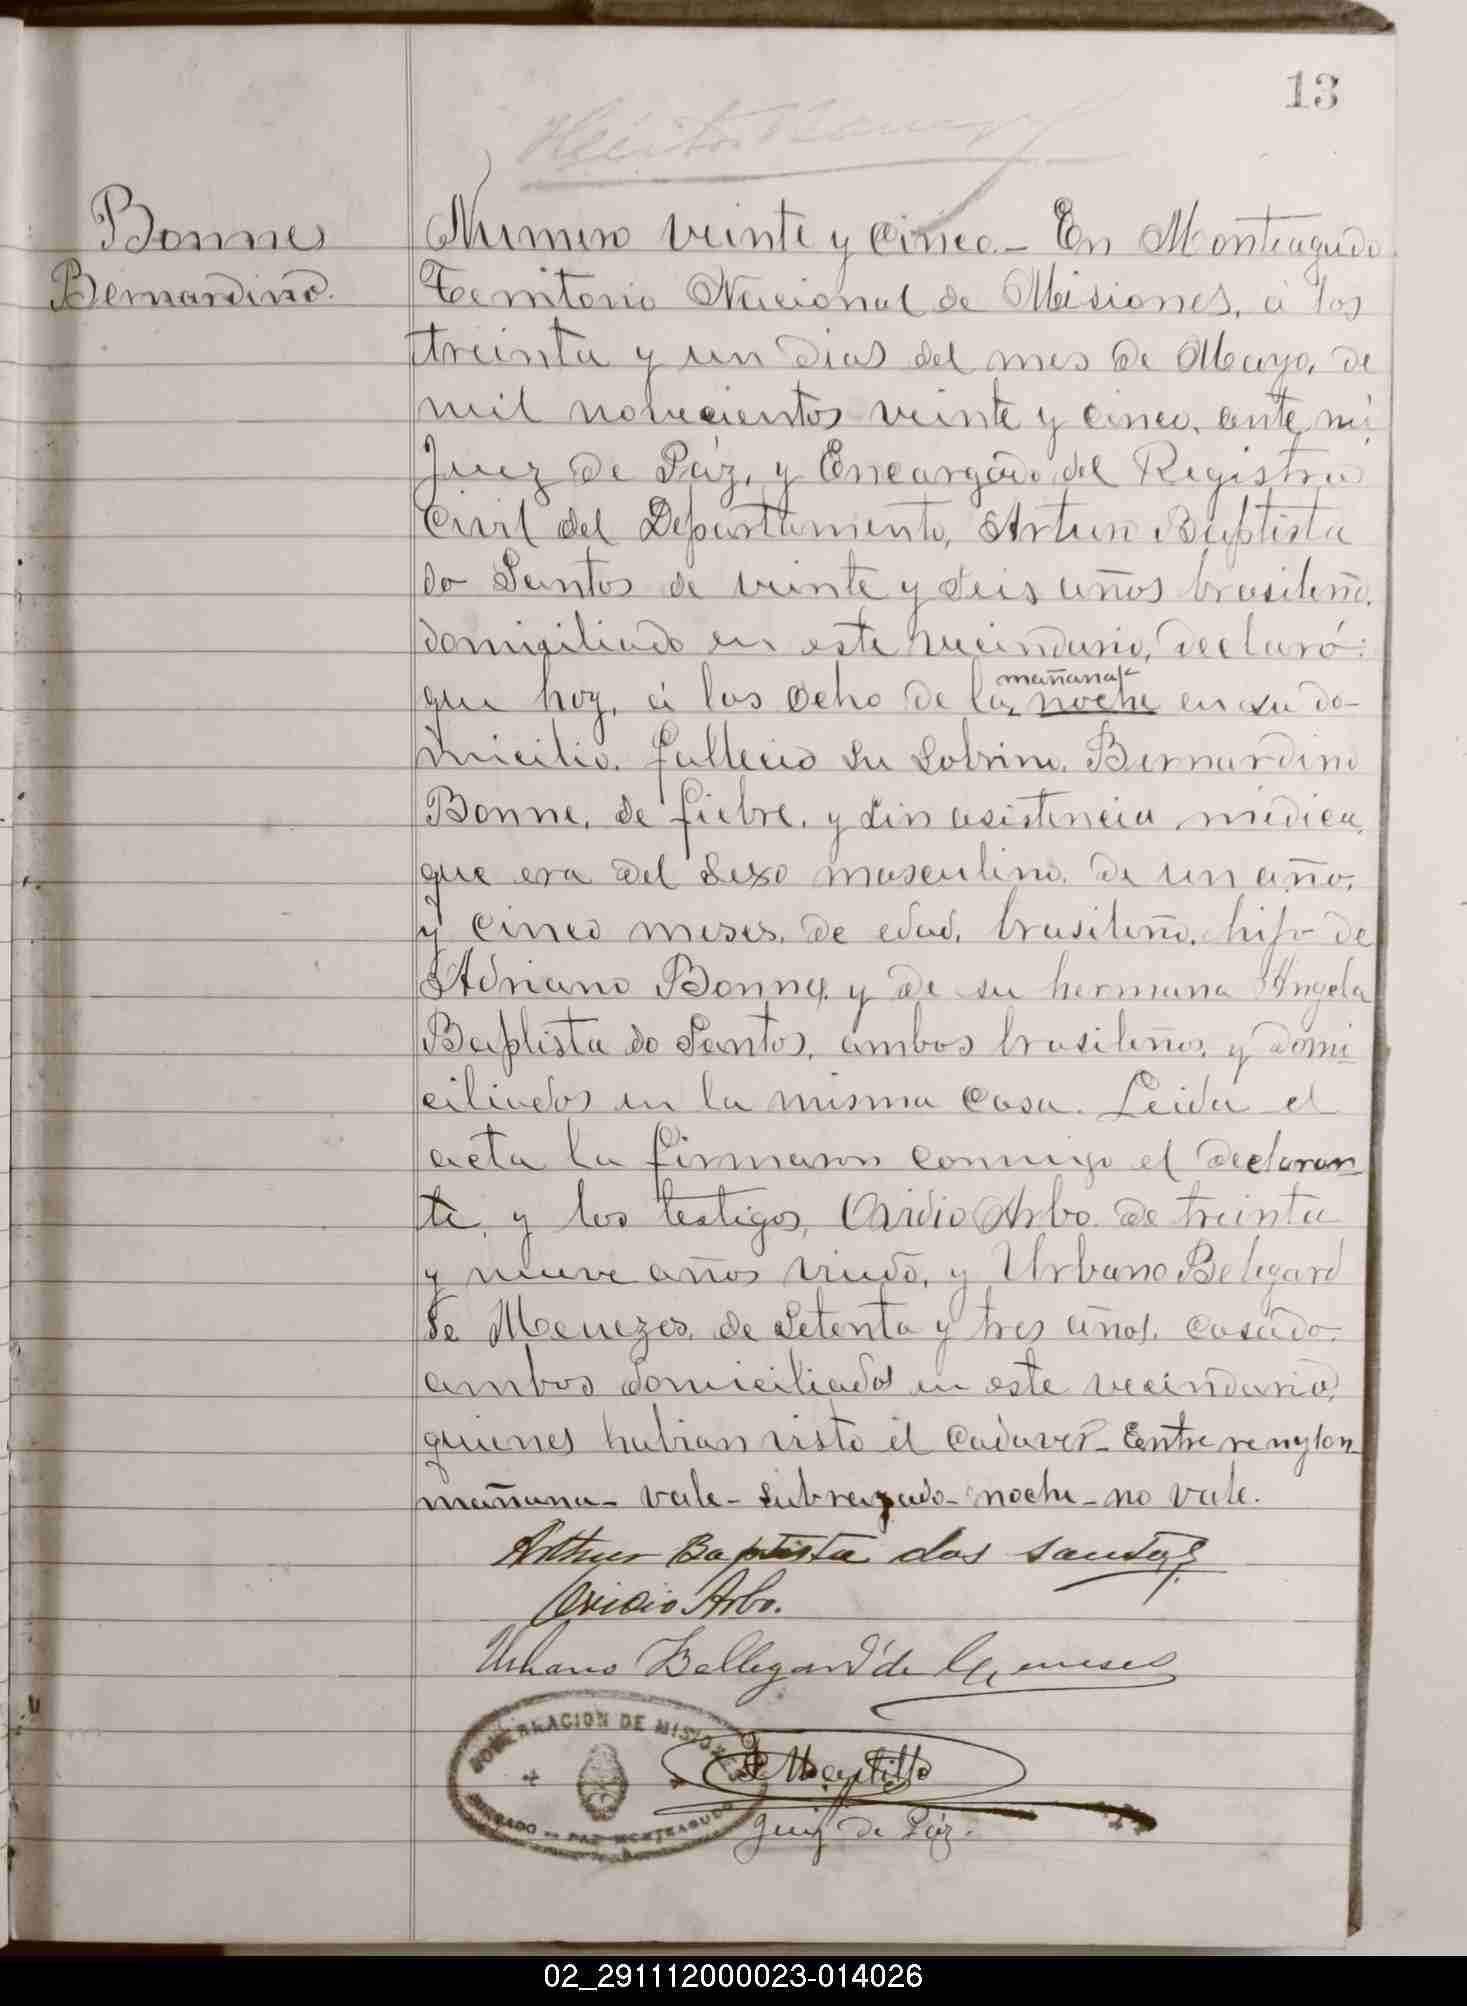 13
Bonnes
Bernardino.
Numero veinte y cinco.- En Monteagudo
Territorio Nacional de Misiones, á los
treinta y un dias del mes de Mayo, de
mil novecientos veinte y cinco, ante mí
Juez de Páz, y Encargado del Registro
Civil del Departamento, Arturo Baptista
do Santos de veinte y seis años brasileño,
domiciliado en este vecindario, declaró:
que hoy, á las ocho de la mañana noche en su do-
micilio. fallecio su sobrino, Bernardino
Bonne, de fiebre, y sin asistencia médica,
que era del sexo masculino, de un año,
y cinco meses, de edad, brasileño, hijo de
Adriano Bonnes, y de su hermana Angela
Baptista do Santos, ambos brasileños, y domi
ciliados en la misma casa. Leida el
acta la firmaron conmigo el declaran-
te, y los testigos, Ovidio Arbo de treinta
y nueve años viudo, y Urbano Belegard
de Menezes, de setenta y tres años, casado.
ambos domiciliados en este vecindario,
quienes habian visto el cadaver- Entre renglon
mañana- vale- subrazado- noche- no vale.
Arthur Baptista dos Santos
Ovidio Arbo.
Urbano Bellegard de Meneses
GOBERNACION DE MISIONES
JUZGADO DE PAZ MONTEAGUDO
Juez de Páz.
02_291112000023-014026